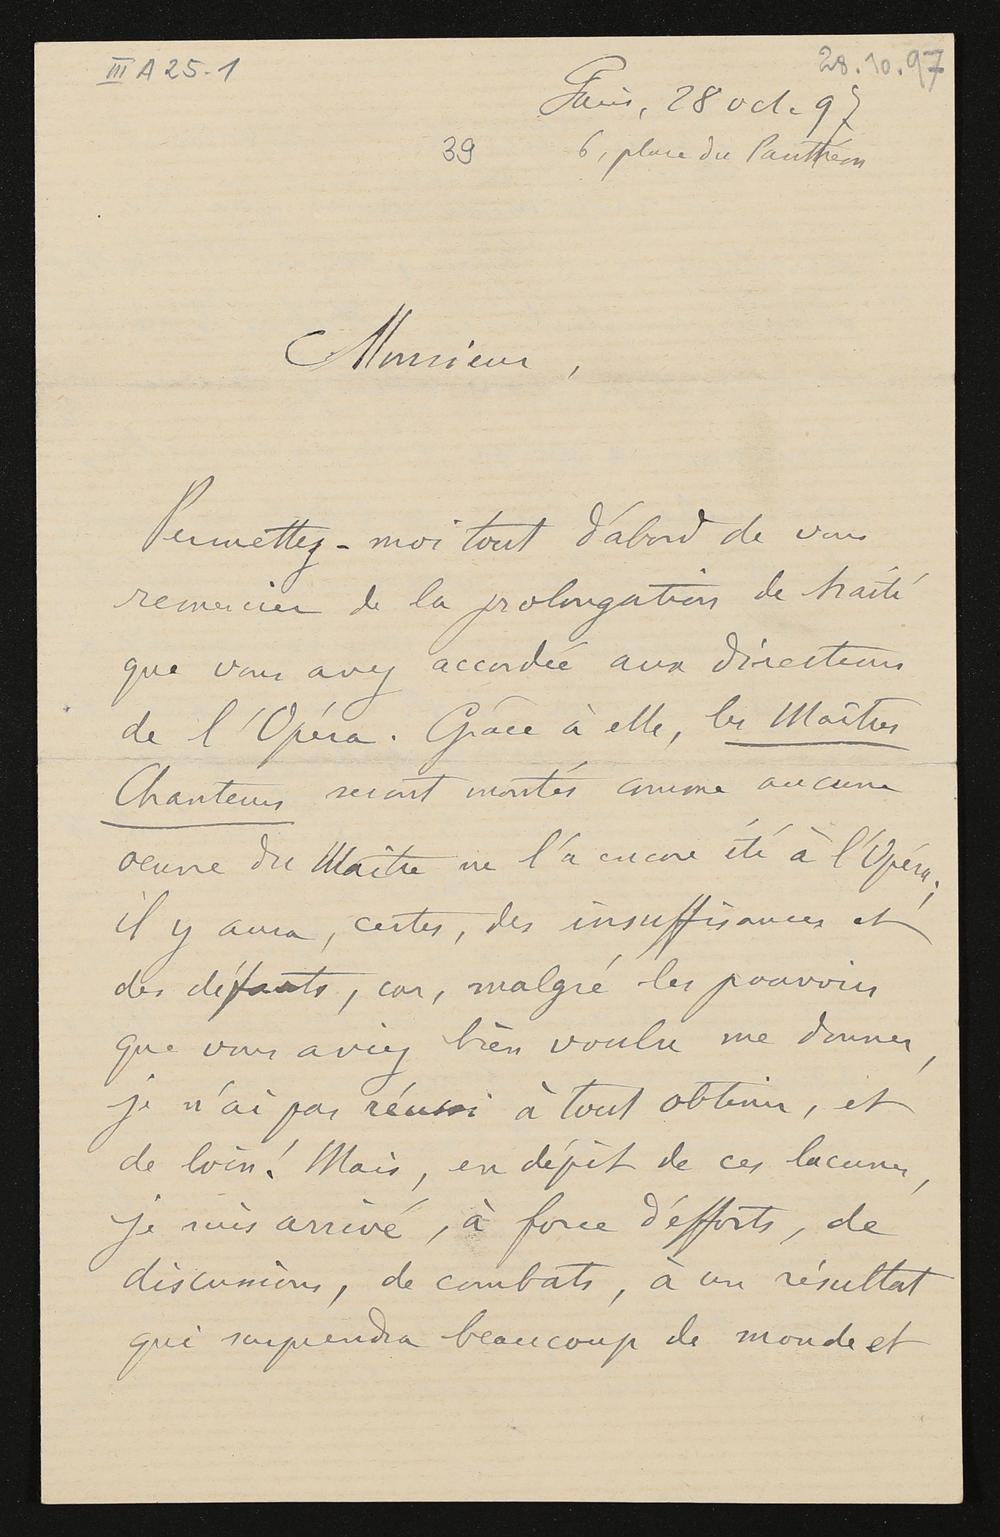 III A 25-1
28.10.97
Paris, 28 oct. 97
39
6, place du Panthéon
Monsieur,
Permettez-moi tout d'abord de vous
remercier de la prolongation de traité
que vous avez accordée aux directeurs
de l'Opéra. Grâce à elle, les Maîtres
Chanteurs seront montés comme aucune
oeuvre du Maître ne l'a encore été à l'Opéra;
il y aura, certes, des insuffisances et
des défauts, car, malgré les pouvoirs
que vous aviez bien voulu me donner,
je n'ai pas réussi à tout obtenir, et
de loin! Mais, en dépit de ces lacunes,
je suis arrivé, à force d'efforts, de
discussions, de combats, à un résultat
qui surprendra beaucoup de monde et